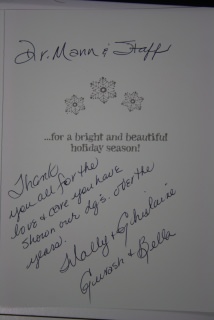 Dr. Mann & Staff
...for a bright and beautiful
holiday season!
Thank
you all for the
love & care you have
shown our dg's. over the
years.
Wally & Ghislaine
& Bella